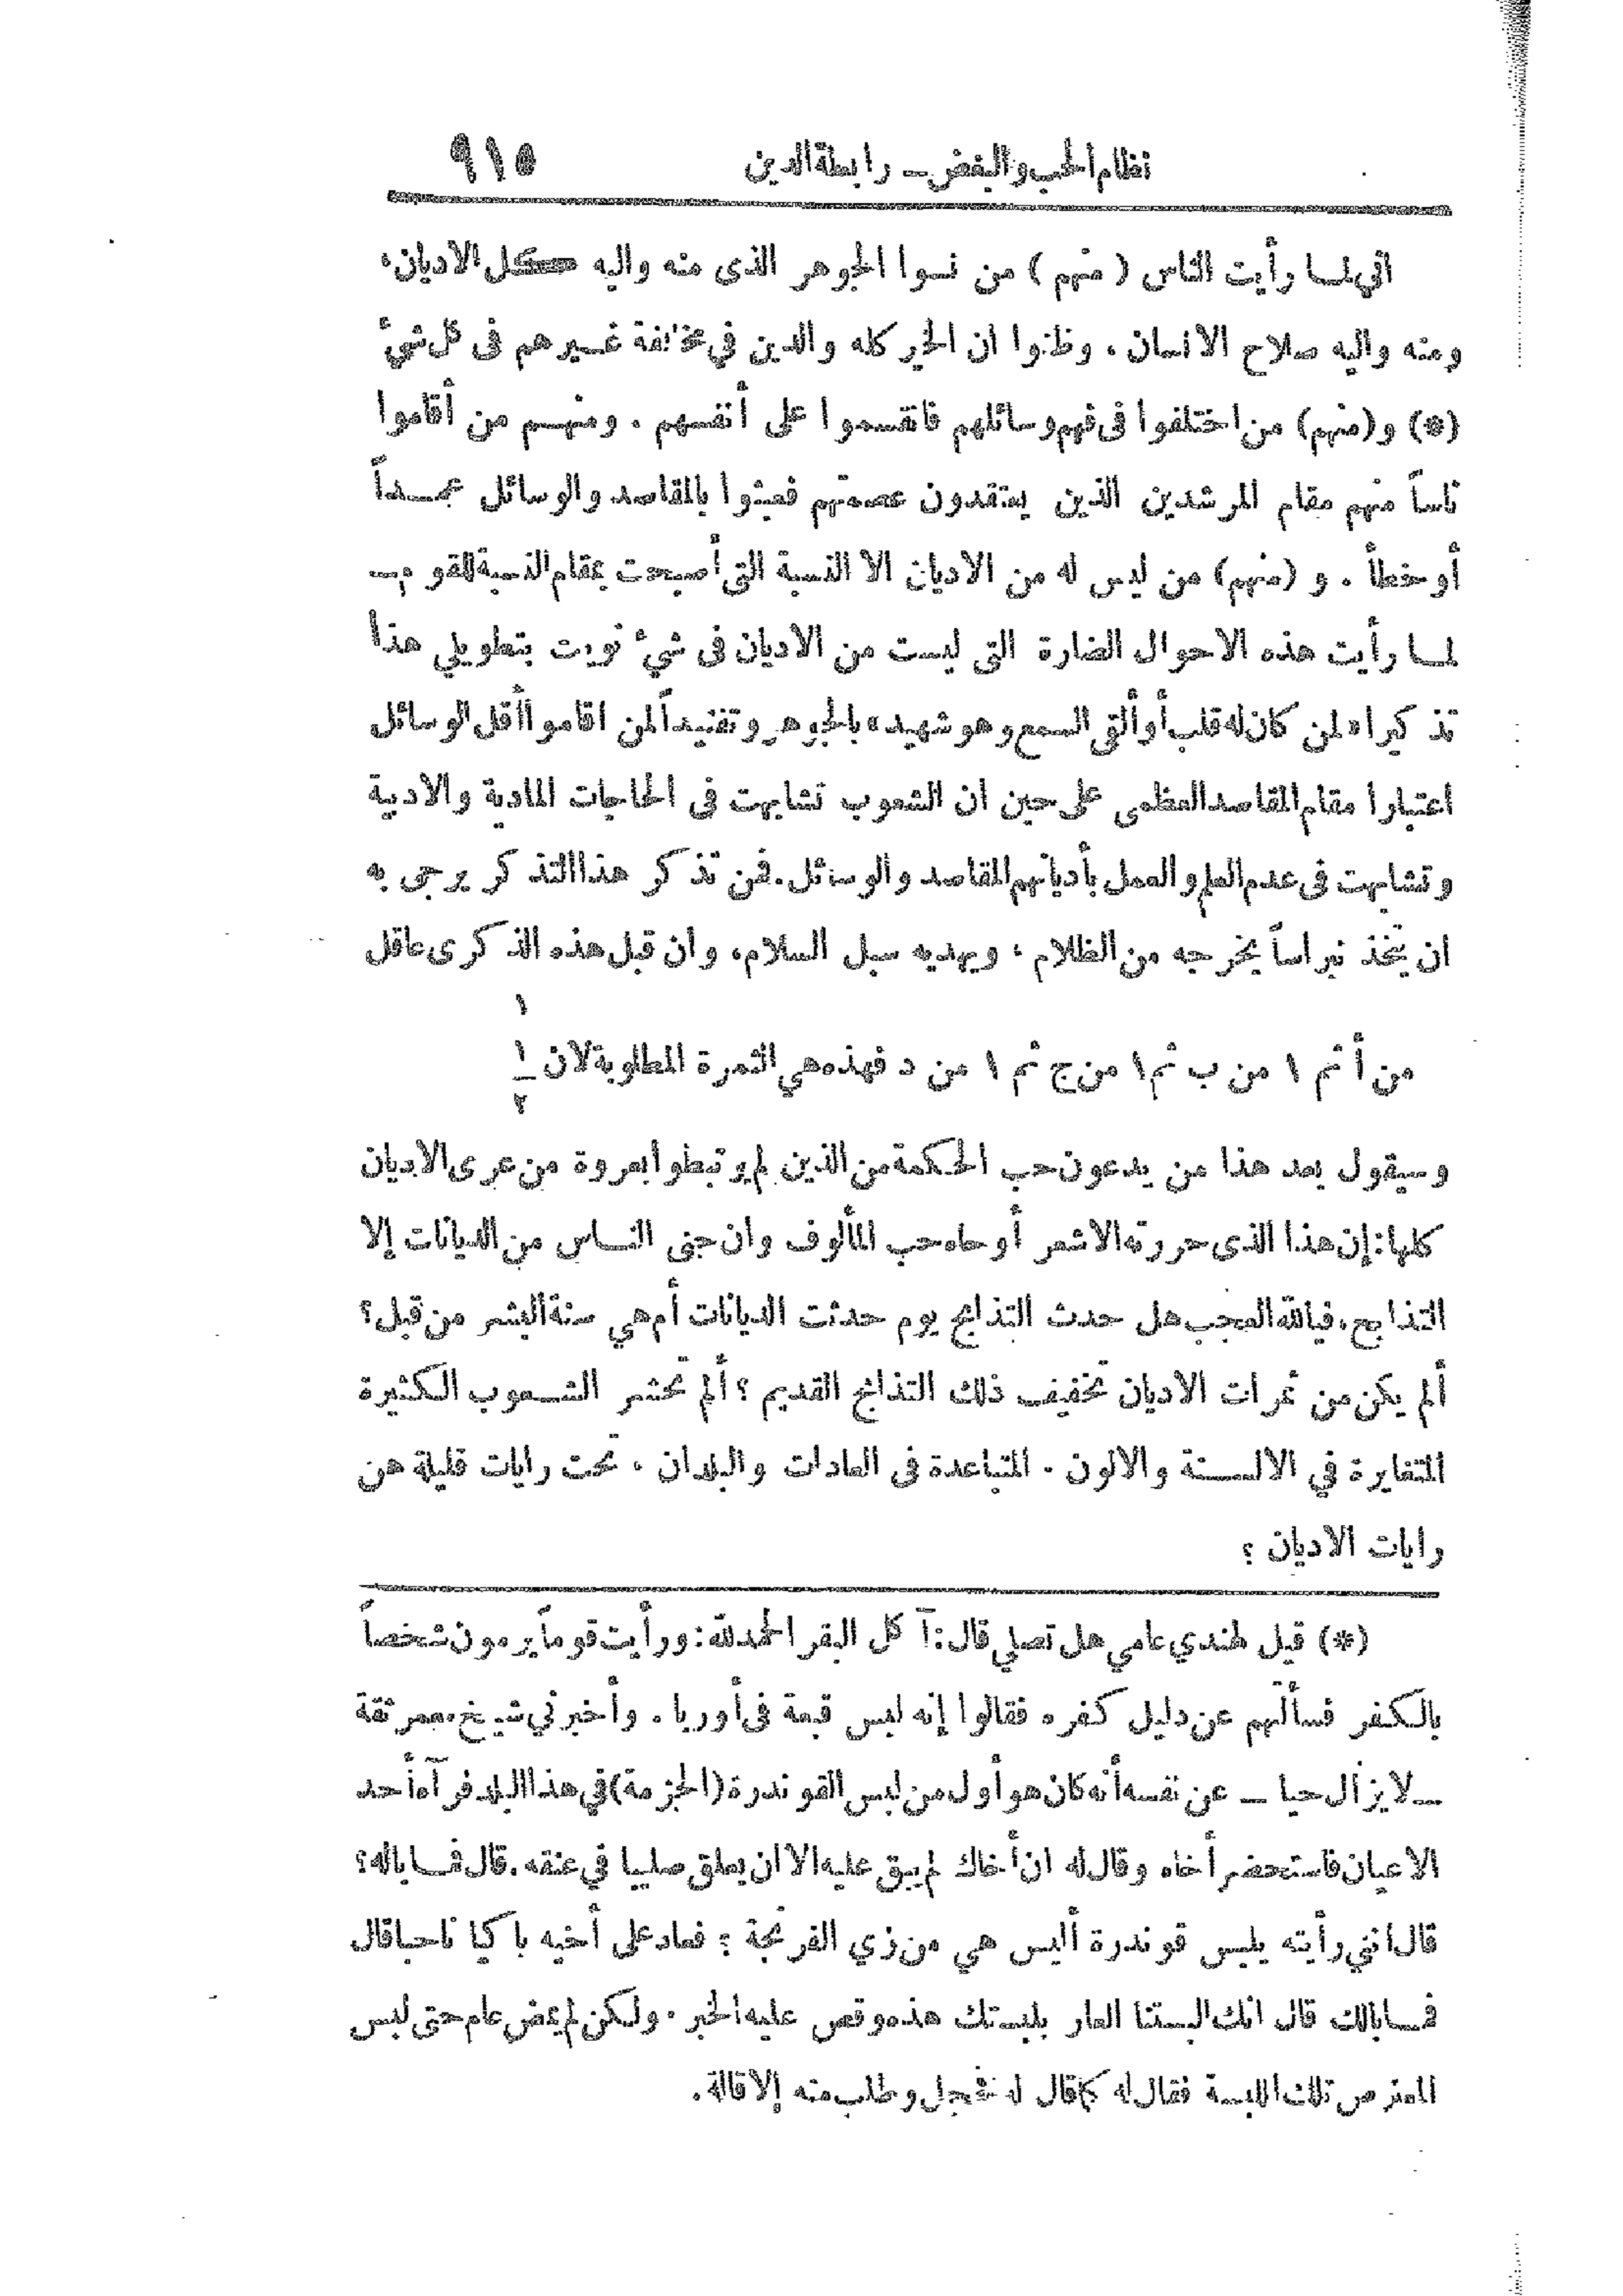 نظام الحب والبغض ــ رابطة الدين ٩١٥
اني لما رأيت الناس ( منهم ) من نسوا الجوهر الذى منه واليه كل الاديان،
ومنه واليه صلاح الانسان ، وظنوا ان الخير كله والدين في مخالفة غيرهم فى كل شيء
(*) و(منهم) من اختلفوا فى فهم وسائلهم فانقسموا على أنفسهم . ومنهم من أقاموا
ناساً منهم مقام المرشدين الذين يعتقدون عصمتهم فعبثوا بالمقاصد والوسائل عمداً
أو خطأ . و (منهم) من ليس له من الاديان الا النسبة التى أصبحت بمقام النسبة للقوم ــ
لما رأيت هذه الاحوال الضارة التى ليست من الاديان فى شيء نويت بتطويلي هذا
تذكيراً «لمن كان له قلب أو ألقى السمع وهو شهيد» بالجوهر وتفنيداً لمن اقاموا أقل الوسائل
اعتباراً مقام المقاصد العظمى على حين ان الشعوب تشابهت فى الحاجات المادية والادبية
وتشابهت فى عدم العلم والعمل بأديانهم المقاصد والوسائل . فمن تذكر هذا التذكر يرجى به
ان يتخذ نبراساً يخرجه من الظلام ، ويهديه سبل السلام، وان قبل هذه الذكرى عاقل
١
من أ ثم ١ من ب ثم ١ من ج ثم ١ من د فهذه هي الثمرة المطلوبة لان ١
٢
وسيقول بعد هذا من يدعون حب الحكمة من الذين لم يرتبطوا بعروة من عرى الاديان
كلها: إن هذا الذى حررته الا شعر أوحاه حب المألوف وان جنى الناس من الديانات إلا
التذابح، فيالله العجب هل حدث التذابح يوم حدثت الديانات أم هي سنة البشر من قبل؟
ألم يكن من ثمرات الاديان تخفيف ذلك التذابح القديم ؟ ألم تحشر الشعوب الكثيرة
المتغايرة في الالسنة والالون . المتباعدة فى العادات والبلدان ، تحت رايات قليلة هن
رايات الاديان ؟
(*) قيل لهندي عامي هل تصلي قال: آكل البقر الحمد لله: ورأيت قوماً يرمون شخصاً
بالكفر فسألتهم عن دليل كفره فقالوا إنه لبس قبعة فى أوربا . وأخبرني شيخ معمر ثقة
ــ لا يزال حيا ــ عن نفسه أنه كان هو أول من لبس القوندرة (الجزمة) في هذا البلد فرآه أحد
الاعيان فاستحضر أخاه وقال له ان أخاك لم يبق عليه الا ان يعلق صليبا في عنقه . قال فما باله؟
قال انني رأيته يلبس قوندرة أليس هي من زي الفرنجة ؟ فعاد على أخيه باكيا ناحبا قال
فما بالك قال انك البستنا العار بلبستك هذه وقص عليه الخبر . ولكن لم يمض عام حتى لبس
المعترض تلك اللبسة فقال له كما قال له فخجل وطلب منه إلاقالة .